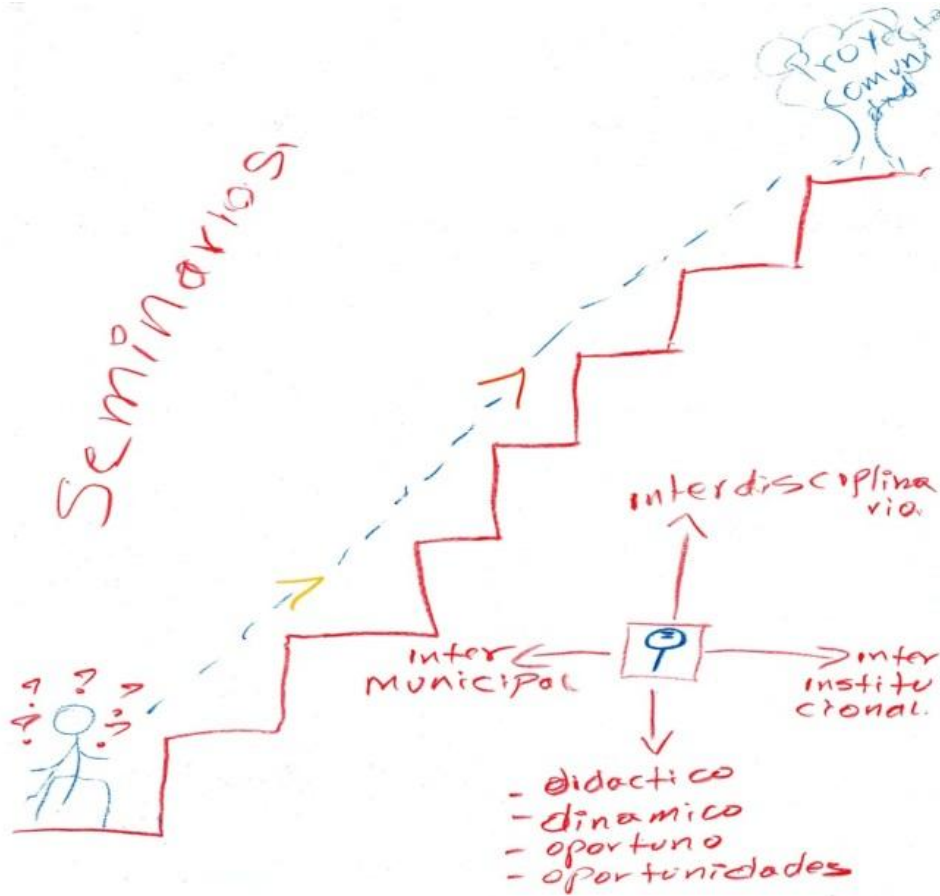 Proyecto
comuni
dad
Seminarios
interdisciplina
rio.
inter
municipal
inter
institu
cional.
- didactico
- dinamico
- oportuno
- oportunidades
? ? ? ? ? ?